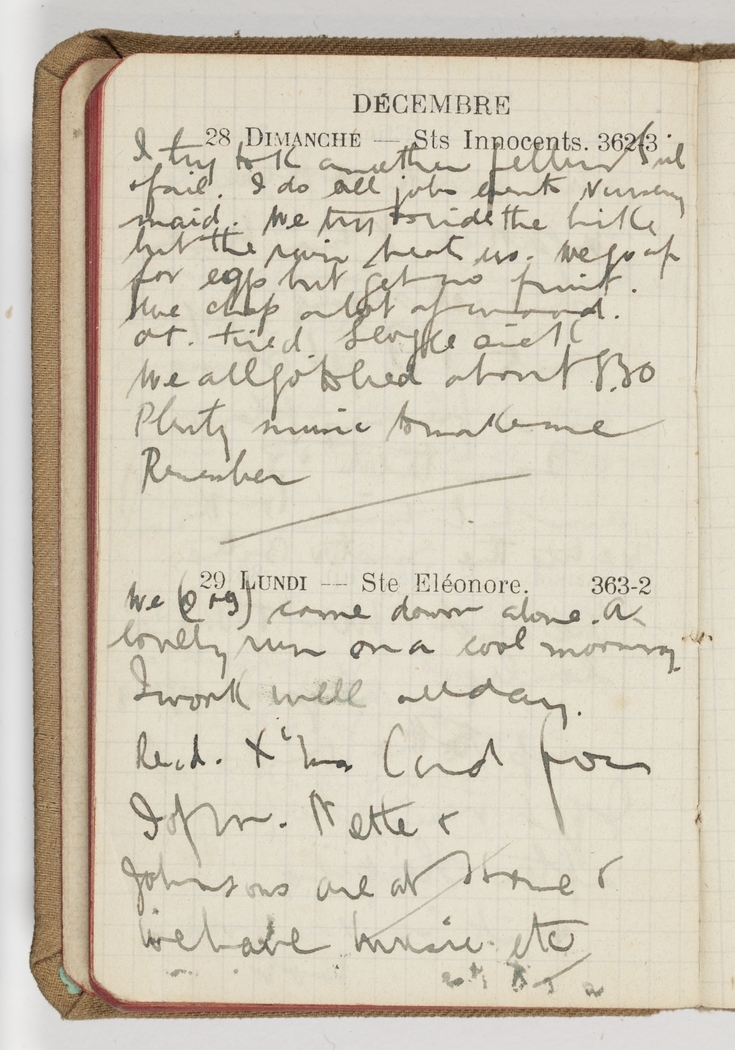 DÉCEMBRE
28 DIMANCHE — Sts Innocents. 362-3
I try to K another but
fail. I do all jobs Nursery
maid. We try to ride the bike
but the rain beats us. We go up
for eggs but get no fruit.
We chop a lot of wood.
tired. sick
We all go to bed about 8.30
Plenty music to make me
Remember
29 LUNDI — Ste Eléonore. 363-2
We come down alone. A
lovely run on a cool morning
I work well all day.
Recd. X'mas Card from
I of M. Nette &
Johnsons are at Home &
We have music. etc